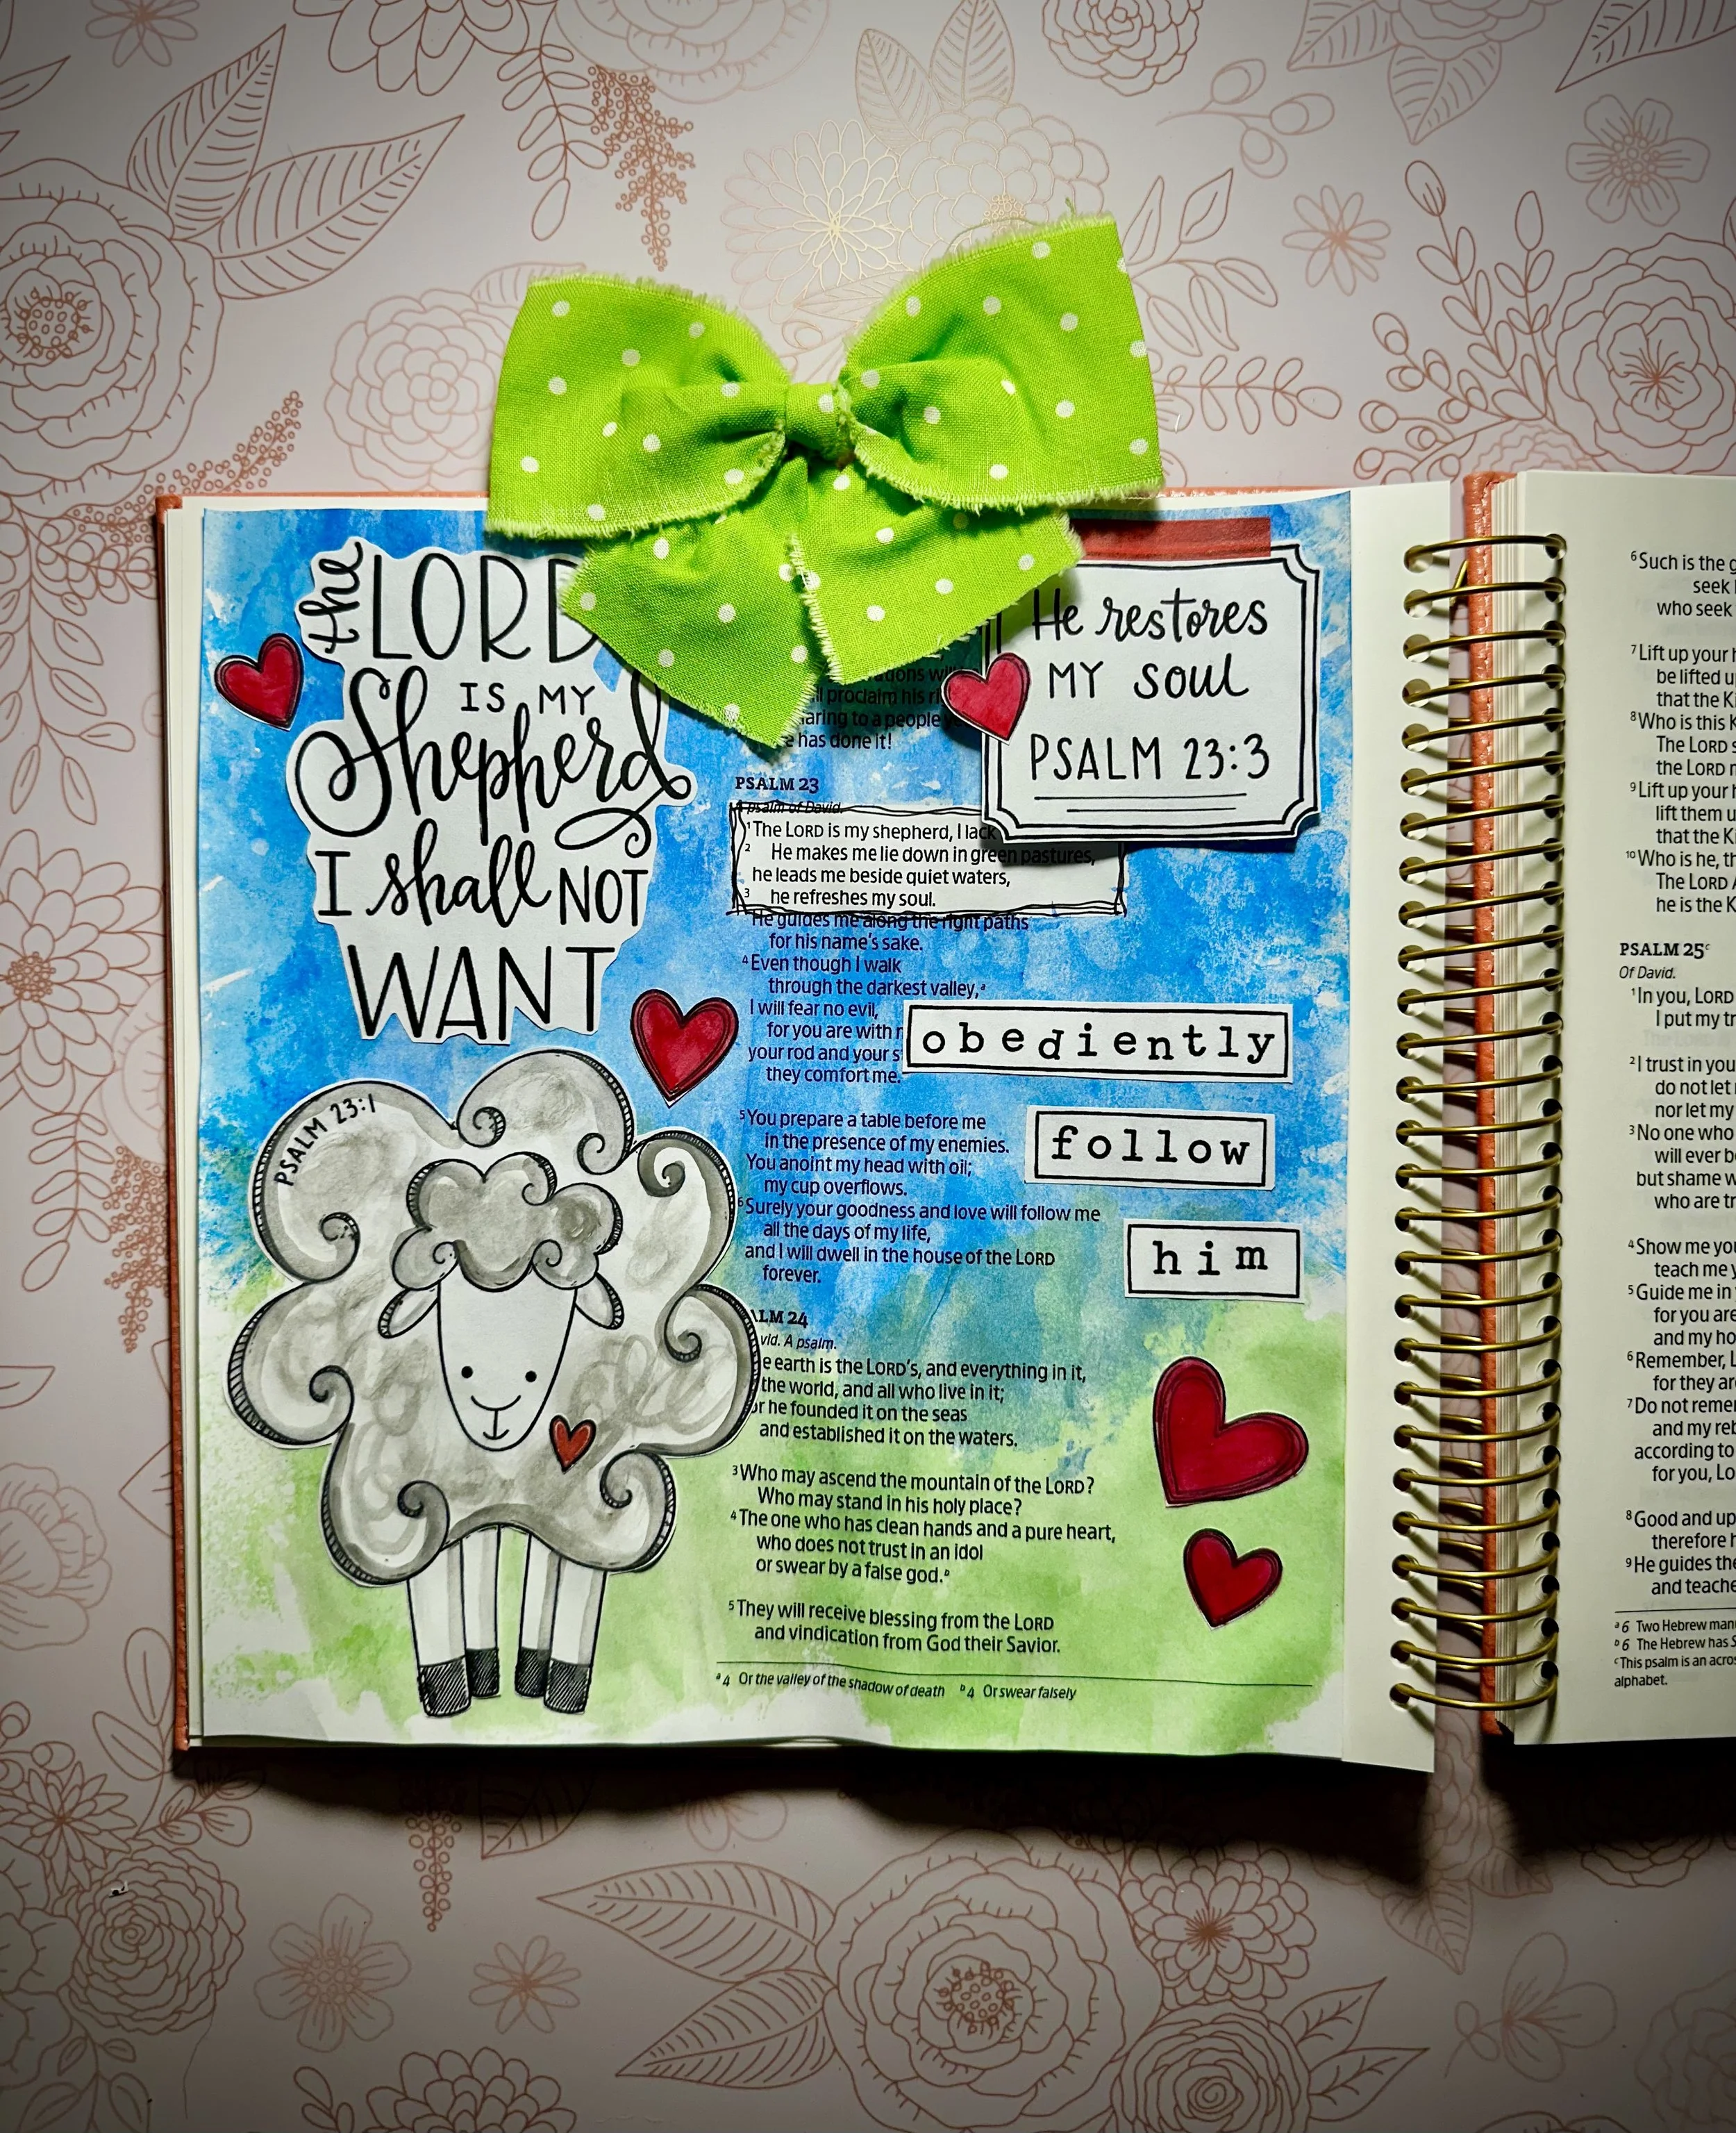 the LORD
IS MY
Shepherd
I shall NOT
WANT
PSALM 23:1
He restores
MY soul
PSALM 23:3
proclaim his
to a people
has done it!
PSALM 23
A psalm of David.
1 The LORD is my shepherd, I lack
2 He makes me lie down in green pastures,
he leads me beside quiet waters,
3 he refreshes my soul.
He guides me along the right paths
for his name's sake.
4 Even though I walk
through the darkest valley,a
I will fear no evil,
for you are with
your rod and your
they comfort me.
obediently
5 You prepare a table before me
in the presence of my enemies.
You anoint my head with oil;
my cup overflows.
follow
6 Surely your goodness and love will follow me
all the days of my life,
and I will dwell in the house of the LORD
forever.
him
24
A psalm.
earth is the LORD's, and everything in it,
the world, and all who live in it;
he founded it on the seas
and established it on the waters.
3 Who may ascend the mountain of the LORD?
Who may stand in his holy place?
4 The one who has clean hands and a pure heart,
who does not trust in an idol
or swear by a false god.b
5 They will receive blessing from the LORD
and vindication from God their Savior.
a 4 Or the valley of the shadow of death b 4 Or swear falsely
6 Such is the
seek
who seek
7 Lift up your
be lifted
that the
8 Who is this
The LORD
the LORD
9 Lift up your
lift them
that the
10 Who is he,
The LORD
he is the
PSALM 25c
Of David.
1 In you, LORD
I put my
2 I trust in you
do not let
nor let my
3 No one who
will ever
but shame
who are
4 Show me
teach me
5 Guide me in
for you are
and my
6 Remember,
for they are
7 Do not
and my
according to
for you,
8 Good and
therefore
9 He guides the
and
a 6 Two Hebrew
b 6 The Hebrew has
c This psalm is an
alphabet.